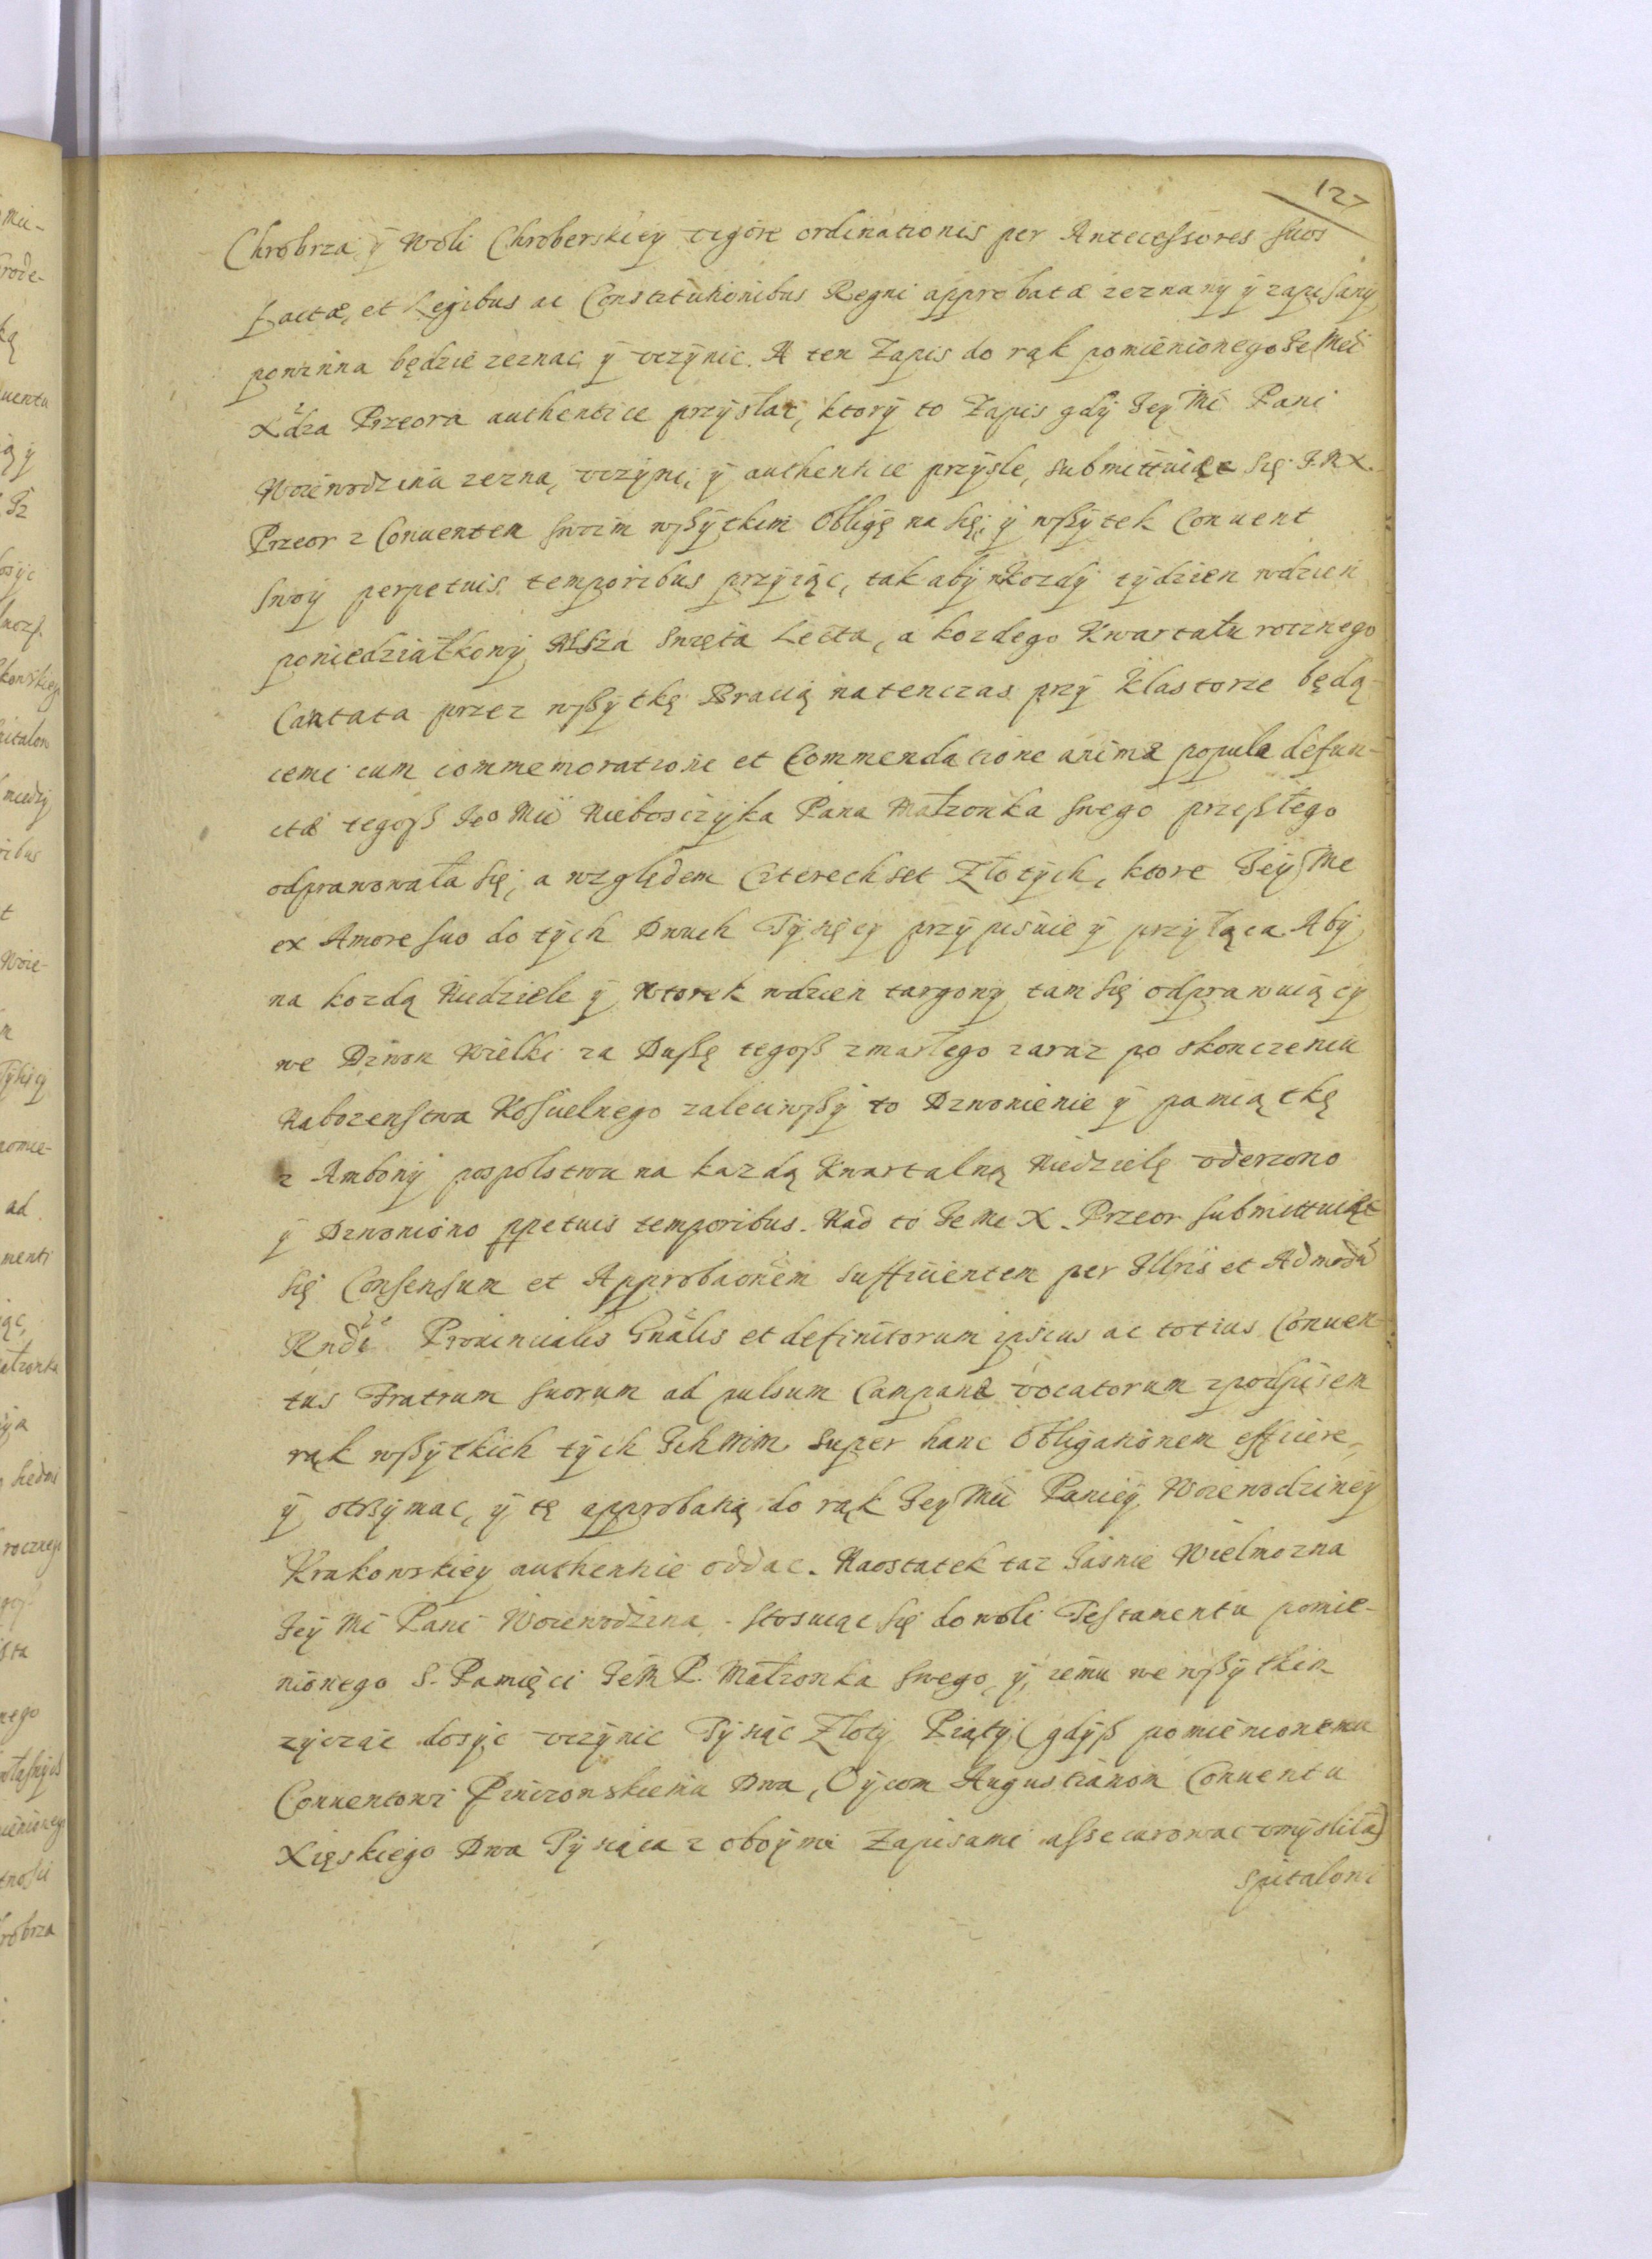 127
Chrobrza ÿ Woli Chroberskieÿ vigore ordinationis per Antecessores suos
factæ, et Legibus ac Constitutionibus Regni approbatæ zeznanÿ ÿ zapisanÿ
powinna będzie zeznac ÿ vczÿnic. A ten Zapis do rąk pomienionego Je Mci
Xdza Przeora authentice przÿsłac, ktorÿ to Zapis gdÿ Jeÿ Mc Pani
Woiewodzina zezna, vczÿni, ÿ authentice przÿsle, submittuiąc się J.M.X.
Przeor z Conuentem swoim wßÿtkim Obligę na się, ÿ wßÿtek Conuent
swoÿ perpetuis temporibus przÿiąc, tak abÿ w kozdÿ tÿdzien wdzien
poniedziałkowÿ Msza Swęta Lecta, a kozdego Kwartału rocznego
Cantata przez wßÿtkę Bracią natenczas przÿ Klastorze będą-
cemi cum commemoratione et Commendatione animæ popula defun-
ctæ tegoß Jeo Mci Nieboscżÿka Pana Małzonka swego przeßłego
odprawowała się, a względem Czterechset Złotÿch, ktore Jeÿ Mc
ex Amore suo do tÿch Dwuch Tÿsięcÿ przÿpisuie ÿ przÿłąca. Abÿ
na kozdą Niedziele ÿ Wtorek wdzien targowÿ tam się odprawuiącÿ
we Dzwon Wielki za Dußę tegoß zmarłego zaraz po skonczeniu
Nabozenstwa Kosciielnego zaleciwßÿ to Dzwonienie ÿ pamiątkę
z Ambonÿ pospolstwu na kazdą Kwartalną Niedzielę vderzono
ÿ Dzwoniono ppetuis temporibus. Nad to Je Mc X. Przeor submittuiąc
się Consensum et Approbaonem sufficientem per Illris et Admodu
Rndi Prouincialis Gnalis et definitorum ipsius ac totius Conuen-
tus Fratrum suorum ad pulsum Campanæ vocatorum zpodpisem
rąk wßÿtkich tÿch Ich Mm. super hanc Obligationem efficere,
ÿ otrzÿmac, ÿ tę approbatią do rąk Jeÿ Mci Panieÿ Woiewodzineÿ
Krakowskieÿ authentice oddac. Naostatek taz Jasnie Wielmozna
Jeÿ Mc Pani Woiewodzina stosuiąc się do woli Testamentu pomie-
nionego S. Pamięci Je M P. Małzonka swego, ÿ iemu we wßÿtkim
zÿcząc dosÿc vczÿnic Tÿsiąc Złotÿ Piątÿ (gdÿß pomienionemu
Conuentowi Pinczowskiemu Dwa, Oÿcom Augustianom Conuentu
Xięskiego Dwa Tÿsiąca z oboÿmi Zapisami assecurowac vmÿsliła)
Spitalowi